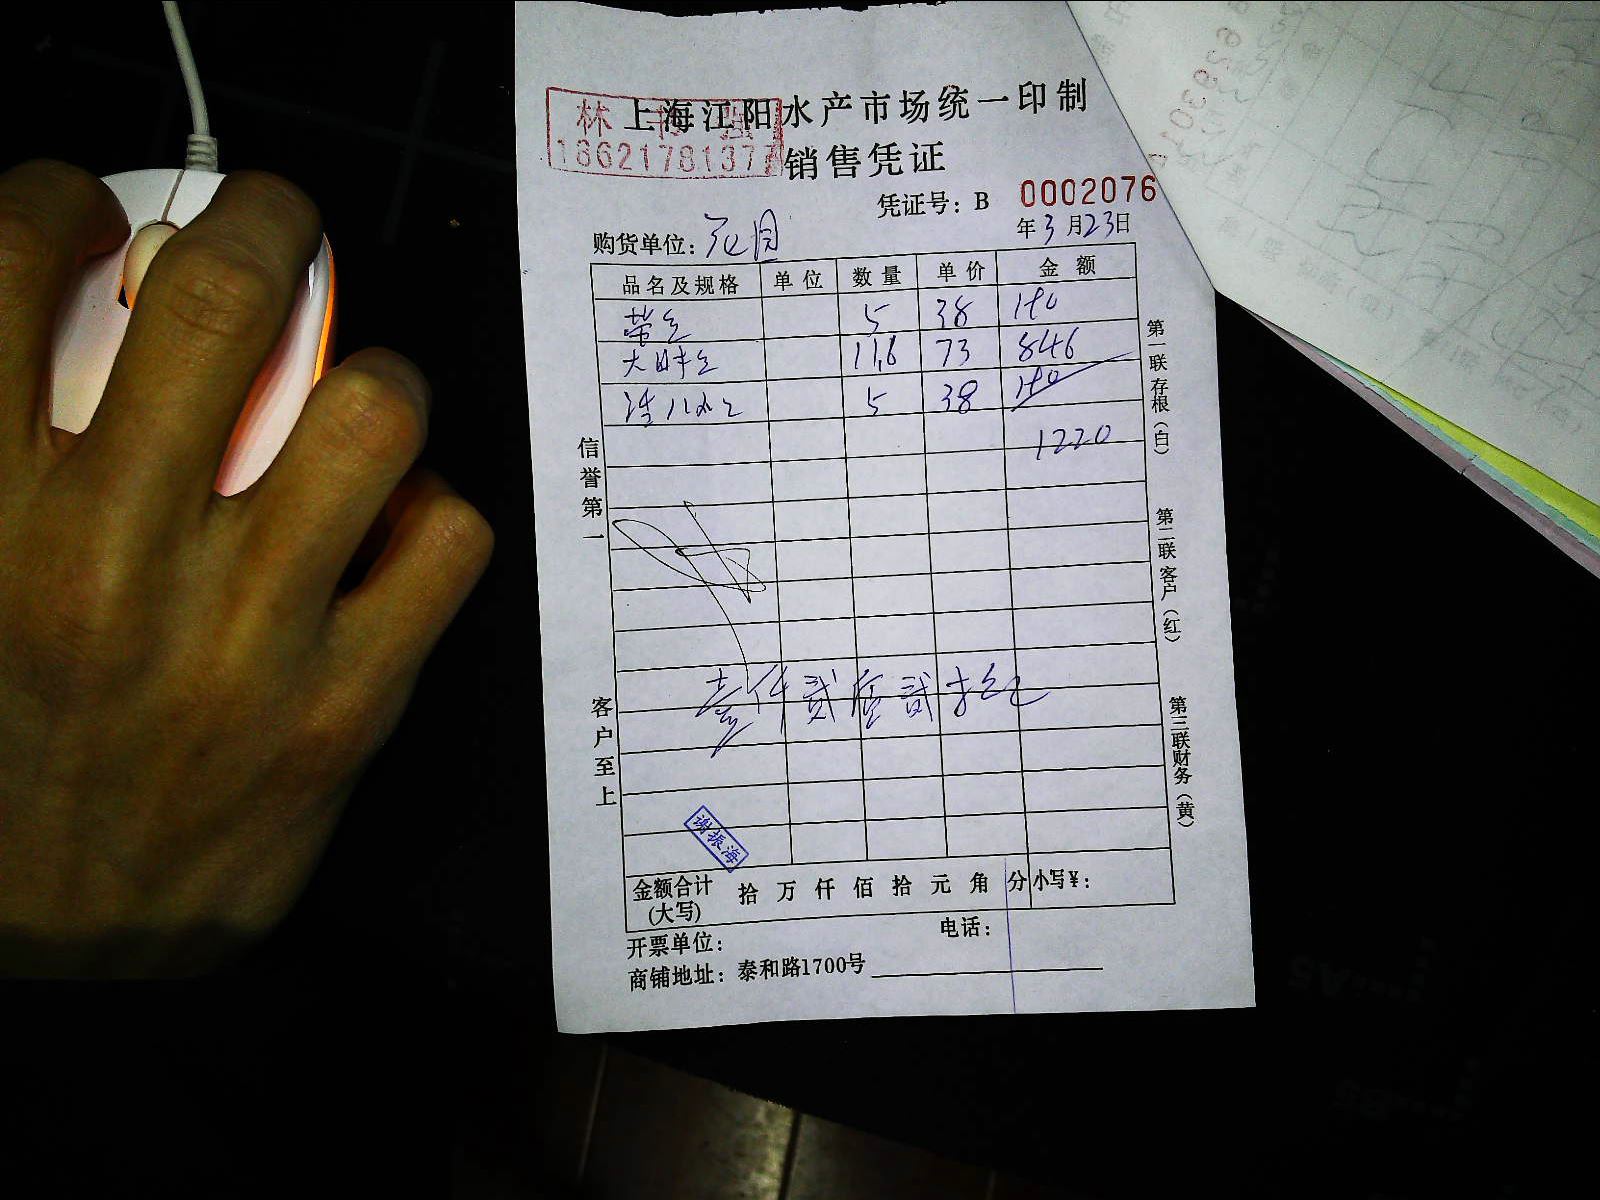 上海江阳水产市场统一印制
林
18621781377
销售凭证
凭证号：B 0002076
年3月23日
购货单位：
品名及规格 单位 数量 单价 金额
5 38 190
大 11.6 73 846
5 38 190
1220
壹仟贰佰贰拾元
信誉第一
客户至上
第一联存根（白）
第二联客户（红）
第三联财务（黄）
谢振海
金额合计 拾 万 仟 佰 拾 元 角 分 小写¥：
(大写)
开票单位： 电话：
商铺地址：泰和路1700号